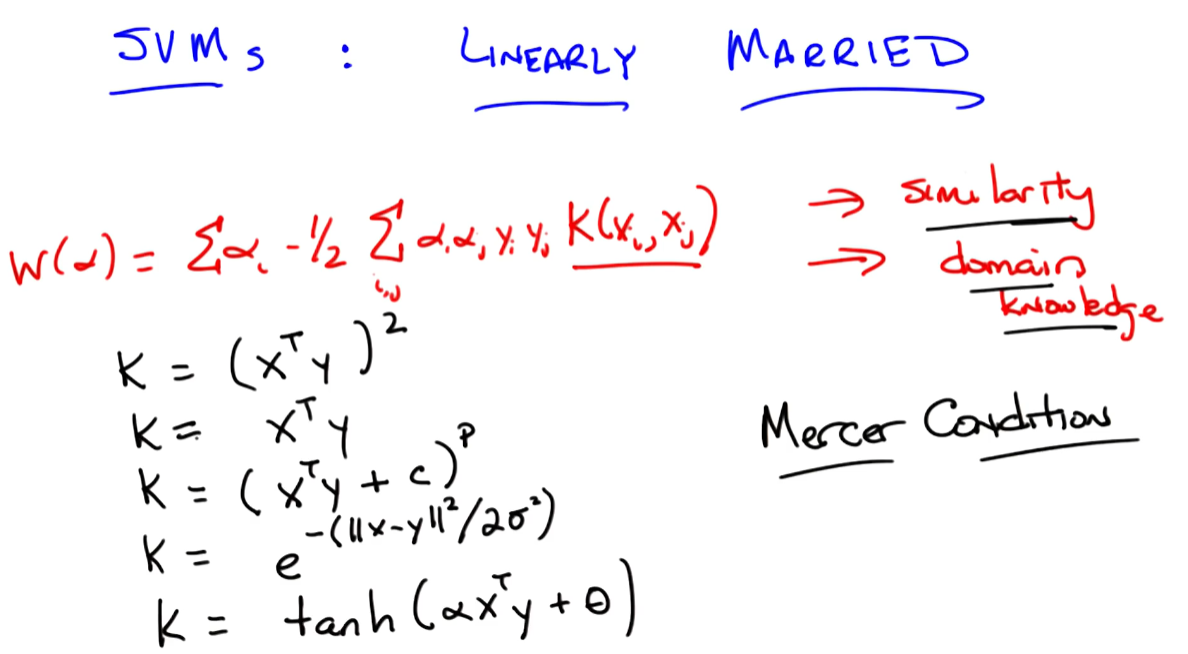 SVMs : LINEARLY MARRIED
W(α) = Σαᵢ - 1/2 Σ αᵢαⱼ yᵢ yⱼ K(xᵢ, xⱼ) → similarity
i,j → domain knowledge
K = (xᵀy)²
K = xᵀy
K = (xᵀy + c)ᵖ
K = e^-(||x-y||²/2σ²)
K = tanh(αxᵀy + θ)
Mercer Condition